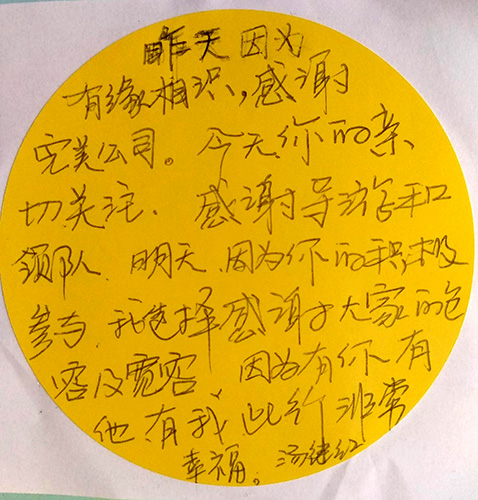 昨天因为
有缘相识,感谢
完美公司。今天,你的亲
切关注、感谢导游和
领队、明天、因为你的积极
参与、我选择感谢于大家的包
容及宽容、因为有你、有
他、有我、此行非常
幸福。汤红